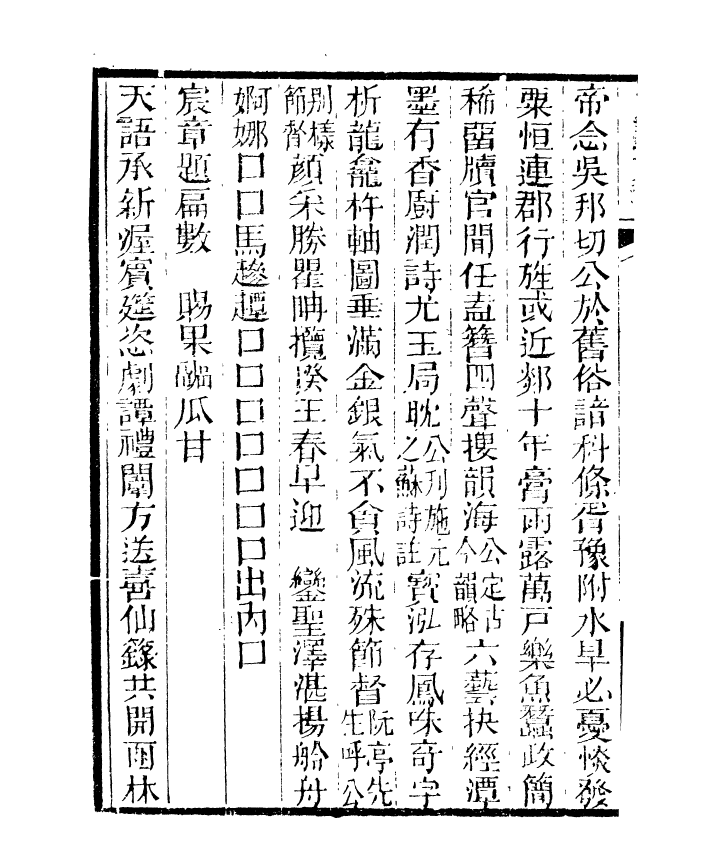 帝念吳邦切公於舊俗諳科條胥豫附水旱必憂惔發
粟恒連郡行旌或近郯十年膏雨露萬戸樂魚蠶政簡
稀畱牘官閒任盍簪四聲搜韻海公定古今韻略六藝抉經潭
墨有香厨潤詩尤玉局耽公刋施元之蘇詩註寳泓存鳳咮奇字
析龍龕杼軸圖垂滿金銀氣不貪風流殊節督阮亭先生呼公
別様節督顔釆勝瞿聃攬揆王春早迎 鑾聖澤湛揚舲舟
婀娜口口馬趁趯口口口口口口口出內口
宸章題扁數 賜果瓜甘
天語承新渥賓筵恣劇譚禮闈方送喜仙籙共開函林